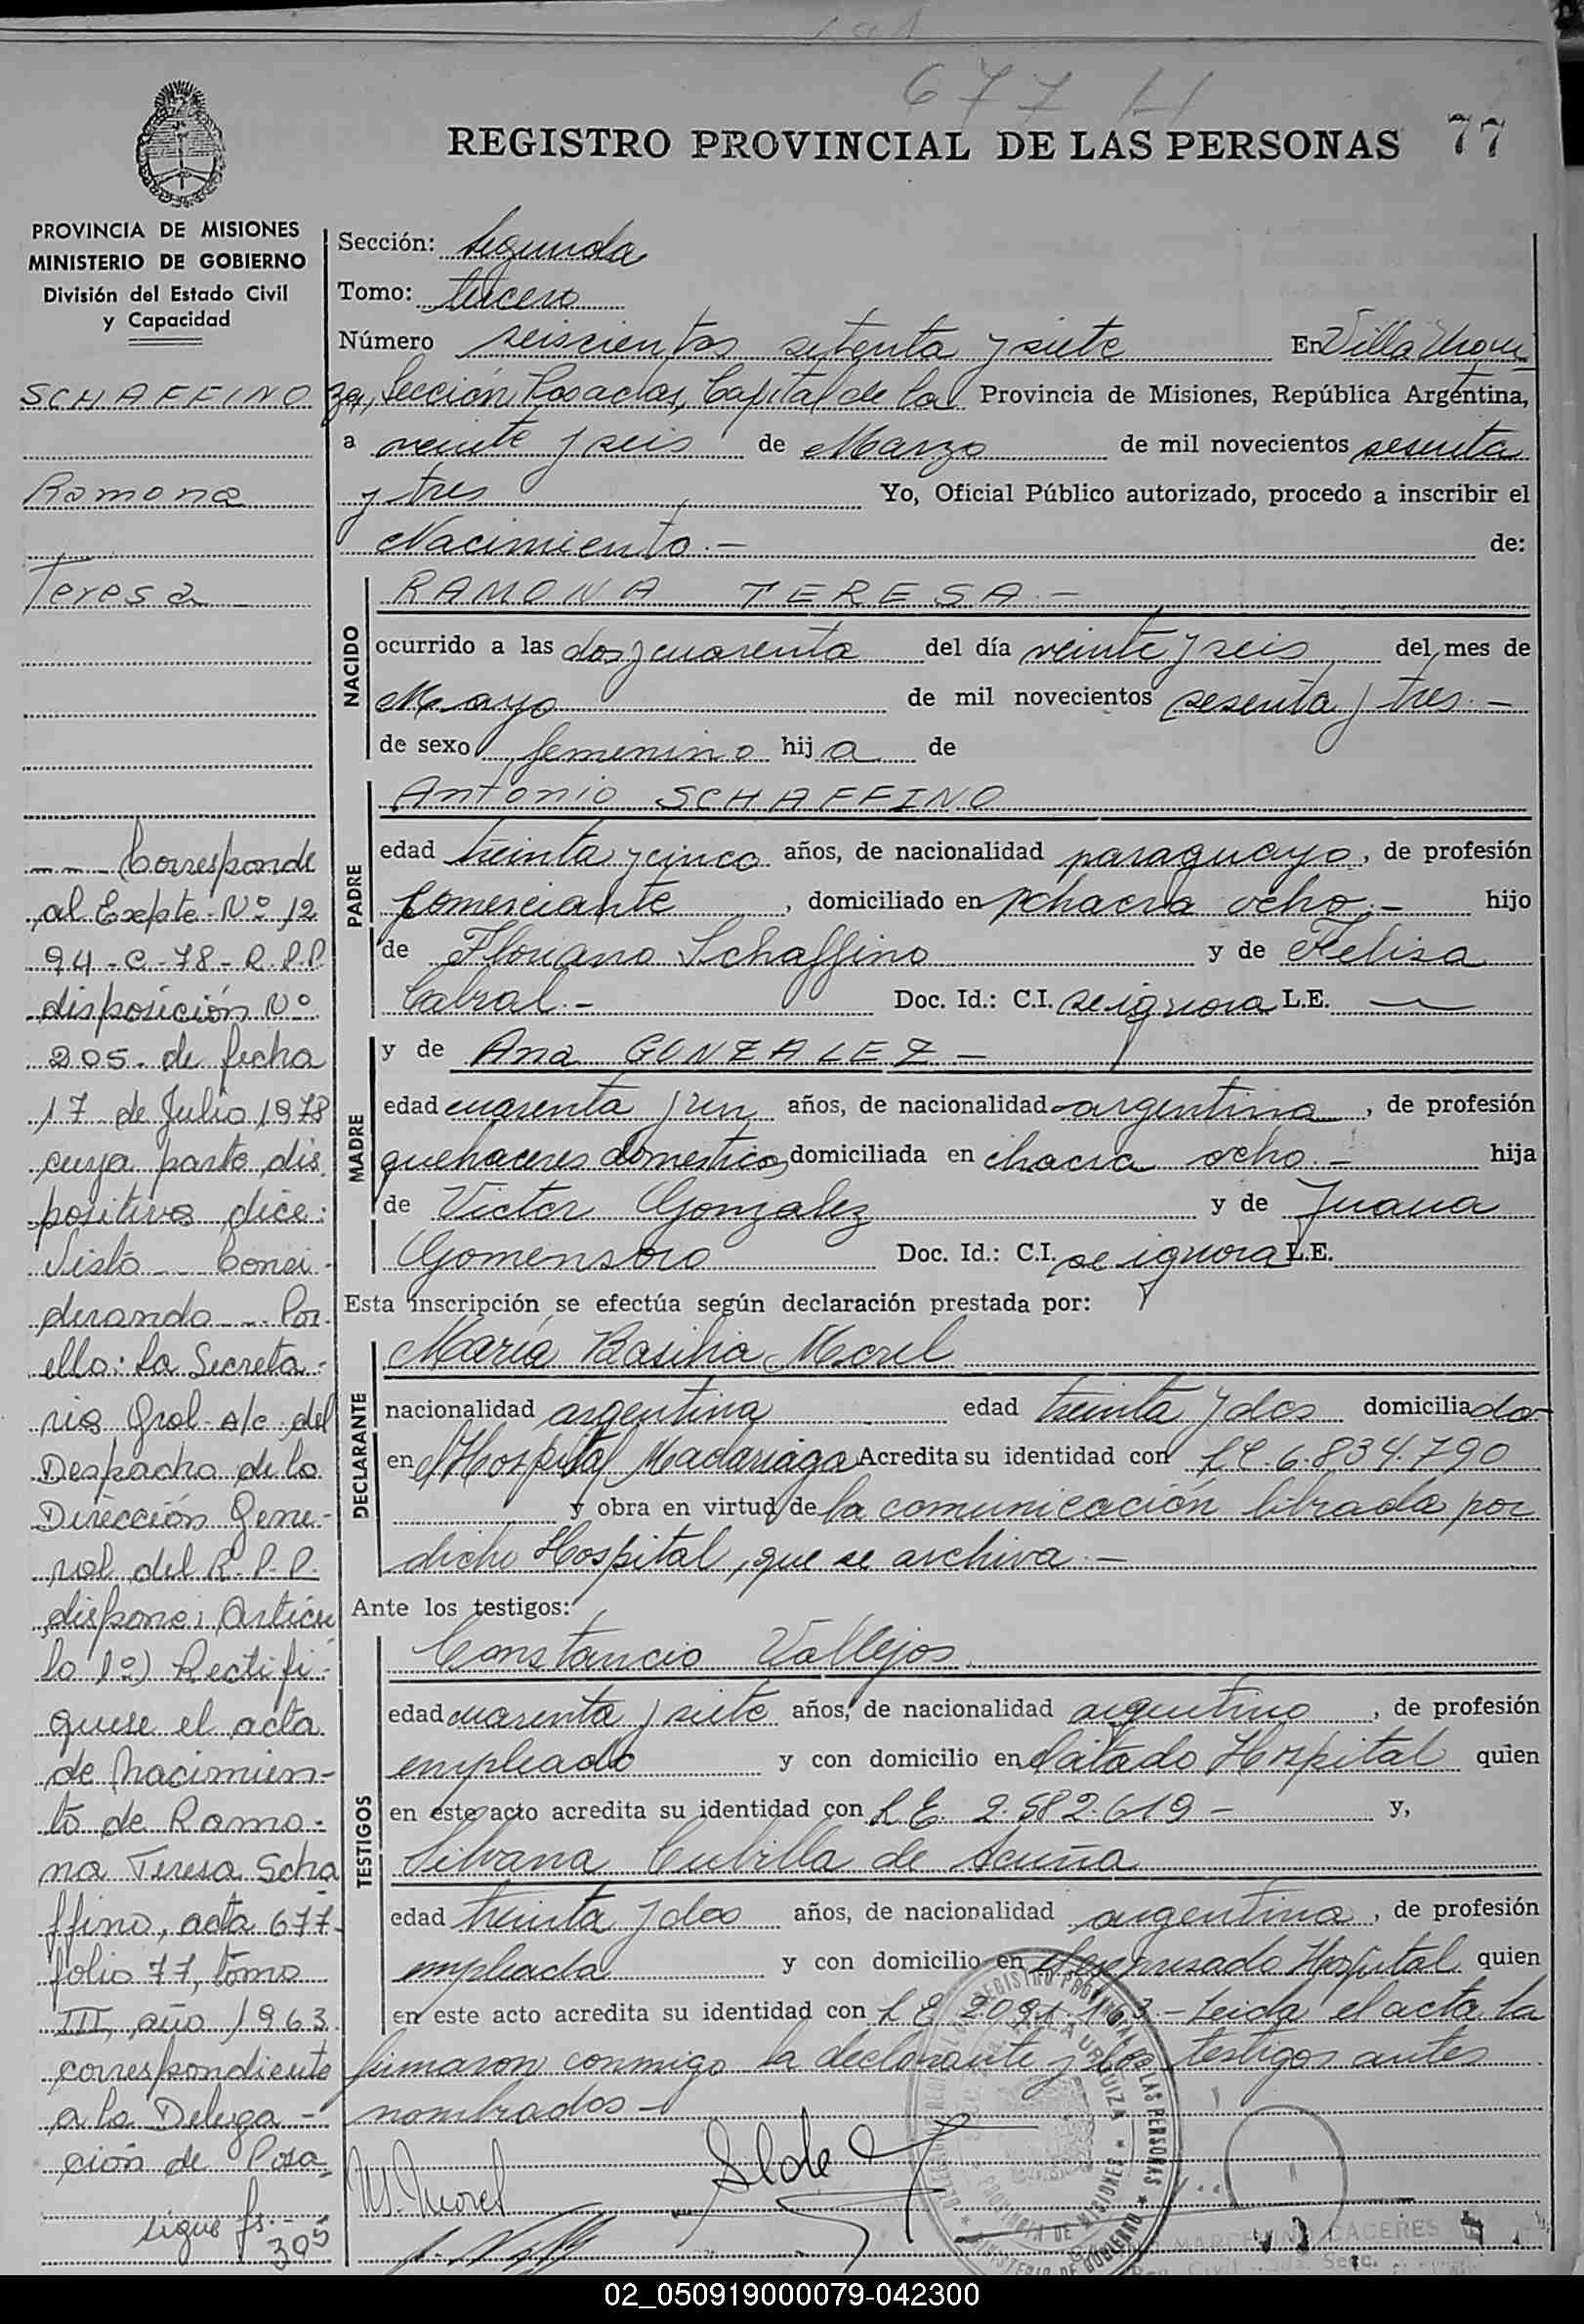 677
REGISTRO PROVINCIAL DE LAS PERSONAS 77
PROVINCIA DE MISIONES
MINISTERIO DE GOBIERNO
División del Estado Civil
y Capacidad
SCHAFFINO
Ramona
Teresa
Corresponde
al Expte. Nº 12
94-C-78-R.P.P.
disposición Nº
205. de fecha
17 de Julio 1978
cuya parte dis
positiva dice:
Visto Consi-
derando Por
ello: La Secreta-
ria Gral a/c del
Despacho de la
Dirección Gene-
ral del R.P.P.
dispone: Artícu
lo 1º) Rectifi-
quese el acta
de nacimien-
to de Ramo-
na Teresa Scha
ffino, acta 677-
folio 77, tomo
III, año 1963
correspondiente
a la Delega-
ción de Posa-
sigue fs.
395
Sección: Segunda
Tomo: tercero
Número seiscientos setenta y siete En Villa Urqui
za, Sección Posadas, Capital de la Provincia de Misiones, República Argentina,
a veinte y seis de Marzo de mil novecientos sesenta
y tres Yo, Oficial Público autorizado, procedo a inscribir el
Nacimiento.- de:
NACIDO
RAMONA TERESA.-
ocurrido a las dos y cuarenta del día veinte y seis del mes de
Mayo de mil novecientos sesenta y tres.-
de sexo femenino hija de
PADRE
Antonio SCHAFFINO
edad treinta y cinco años, de nacionalidad paraguayo, de profesión
comerciante, domiciliado en chacra ocho.- hijo
de Floriano Schaffino y de Felisa
Cabral.- Doc. Id.: C.I. se ignora L.E.
MADRE
y de Ana GONZALEZ -
edad cuarenta y un años, de nacionalidad argentina, de profesión
quehaceres domesticos domiciliada en chacra ocho.- hija
de Victor Gonzalez y de Juana
Gomensoro Doc. Id.: C.I. se ignora L.E.
Esta inscripción se efectúa según declaración prestada por:
DECLARANTE
María Basilia Morel
nacionalidad argentina edad treinta y dos domiciliada
en el Hospital Madariaga Acredita su identidad con LC. 6.834.790
y obra en virtud de la comunicación librada por
dicho Hospital, que se archiva.-
Ante los testigos:
TESTIGOS
Constancio Vallejos
edad cuarenta y siete años, de nacionalidad argentino, de profesión
empleado y con domicilio en citado Hospital quien
en este acto acredita su identidad con L E. 2.582.619 - y,
Silvana Cubilla de Acuña
edad treinta y dos años, de nacionalidad argentina, de profesión
empleada y con domicilio en el expresado Hospital quien
en este acto acredita su identidad con - Leida el acta la
firmaron conmigo la declarante y los testigos antes
nombrados -
M. Morel
REGISTRO PROVINCIAL DE LAS PERSONAS
VILLA URQUIZA
PROVINCIA DE MISIONES
MINISTERIO DE GOBIERNO
MARCELINO CACERES
02_050919000079-042300